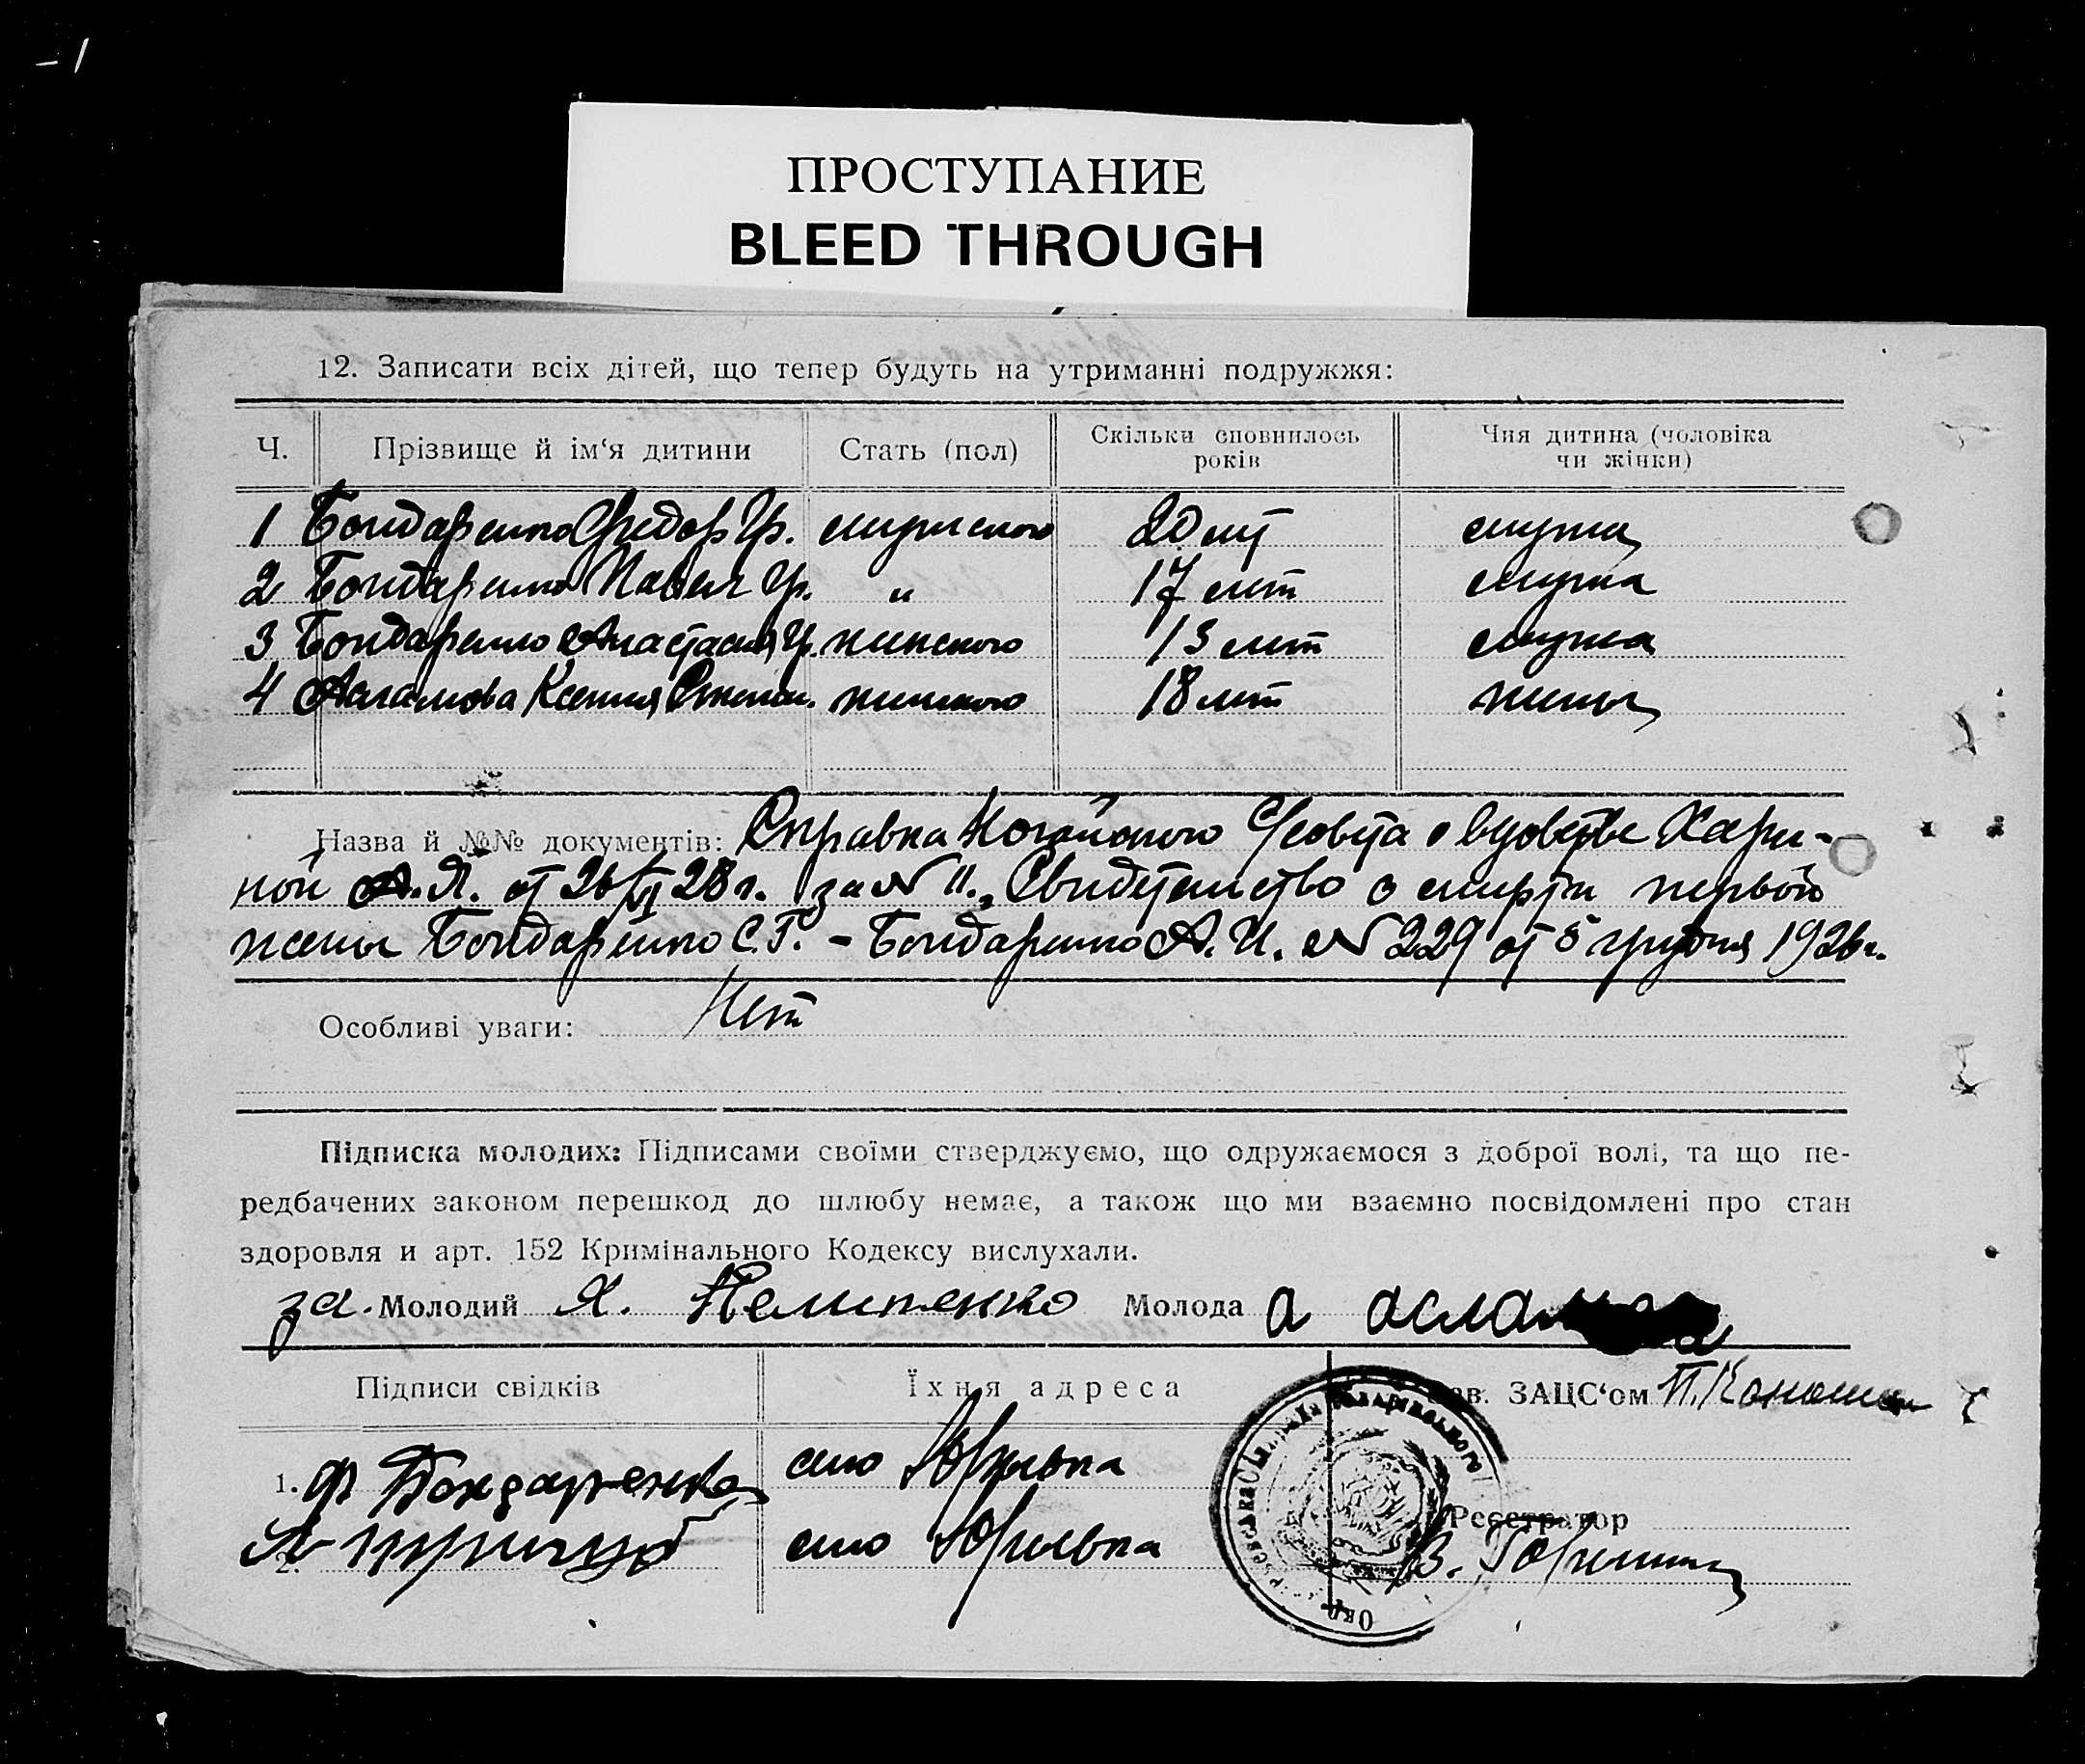 ПРОСТУПАНИЕ
BLEED THROUGH
12. Записати всіх дітей, що тепер будуть на утриманні подружжя:
Ч. Прізвище й ім‘я дитини Стать (пол) Скільки сповнилось років Чия дитина (чоловіка чи жінки)
1 Бондаренко Федор Гр. мужского 20 лет мужа
2 Бондаренко Павел Гр. " 17 лет мужа
3 Бондаренко Анастасия Гр. женского 13 лет мужа
4 Асламова Ксения Степан. женского 18 лет жены
Назва й №№ документів: Справка Ногайского С/совета о вдовстве Хари-
ной А.Я. от 26/VI 28 г. за № 11. Свидетельство о смерти первой
жены Бондаренко С.Г. - Бондаренко А.И. № 229 от 5 грудня 1926 г.
Особливі уваги: Нет
Підписка молодих: Підписами своїми стверджуємо, що одружаємося з доброї волі, та що пе-
редбачених законом перешкод до шлюбу немає, а також що ми взаємно посвідомлені про стан
здоровля и арт. 152 Кримінального Кодексу вислухали.
за. Молодий Я. Молода а аслам
Підписи свідків Їхня адреса Зав. ЗАЦС‘ом П.
1. Ф Бондаренко село Юрьевка
Реєстратор
2. село Юрьевка В.